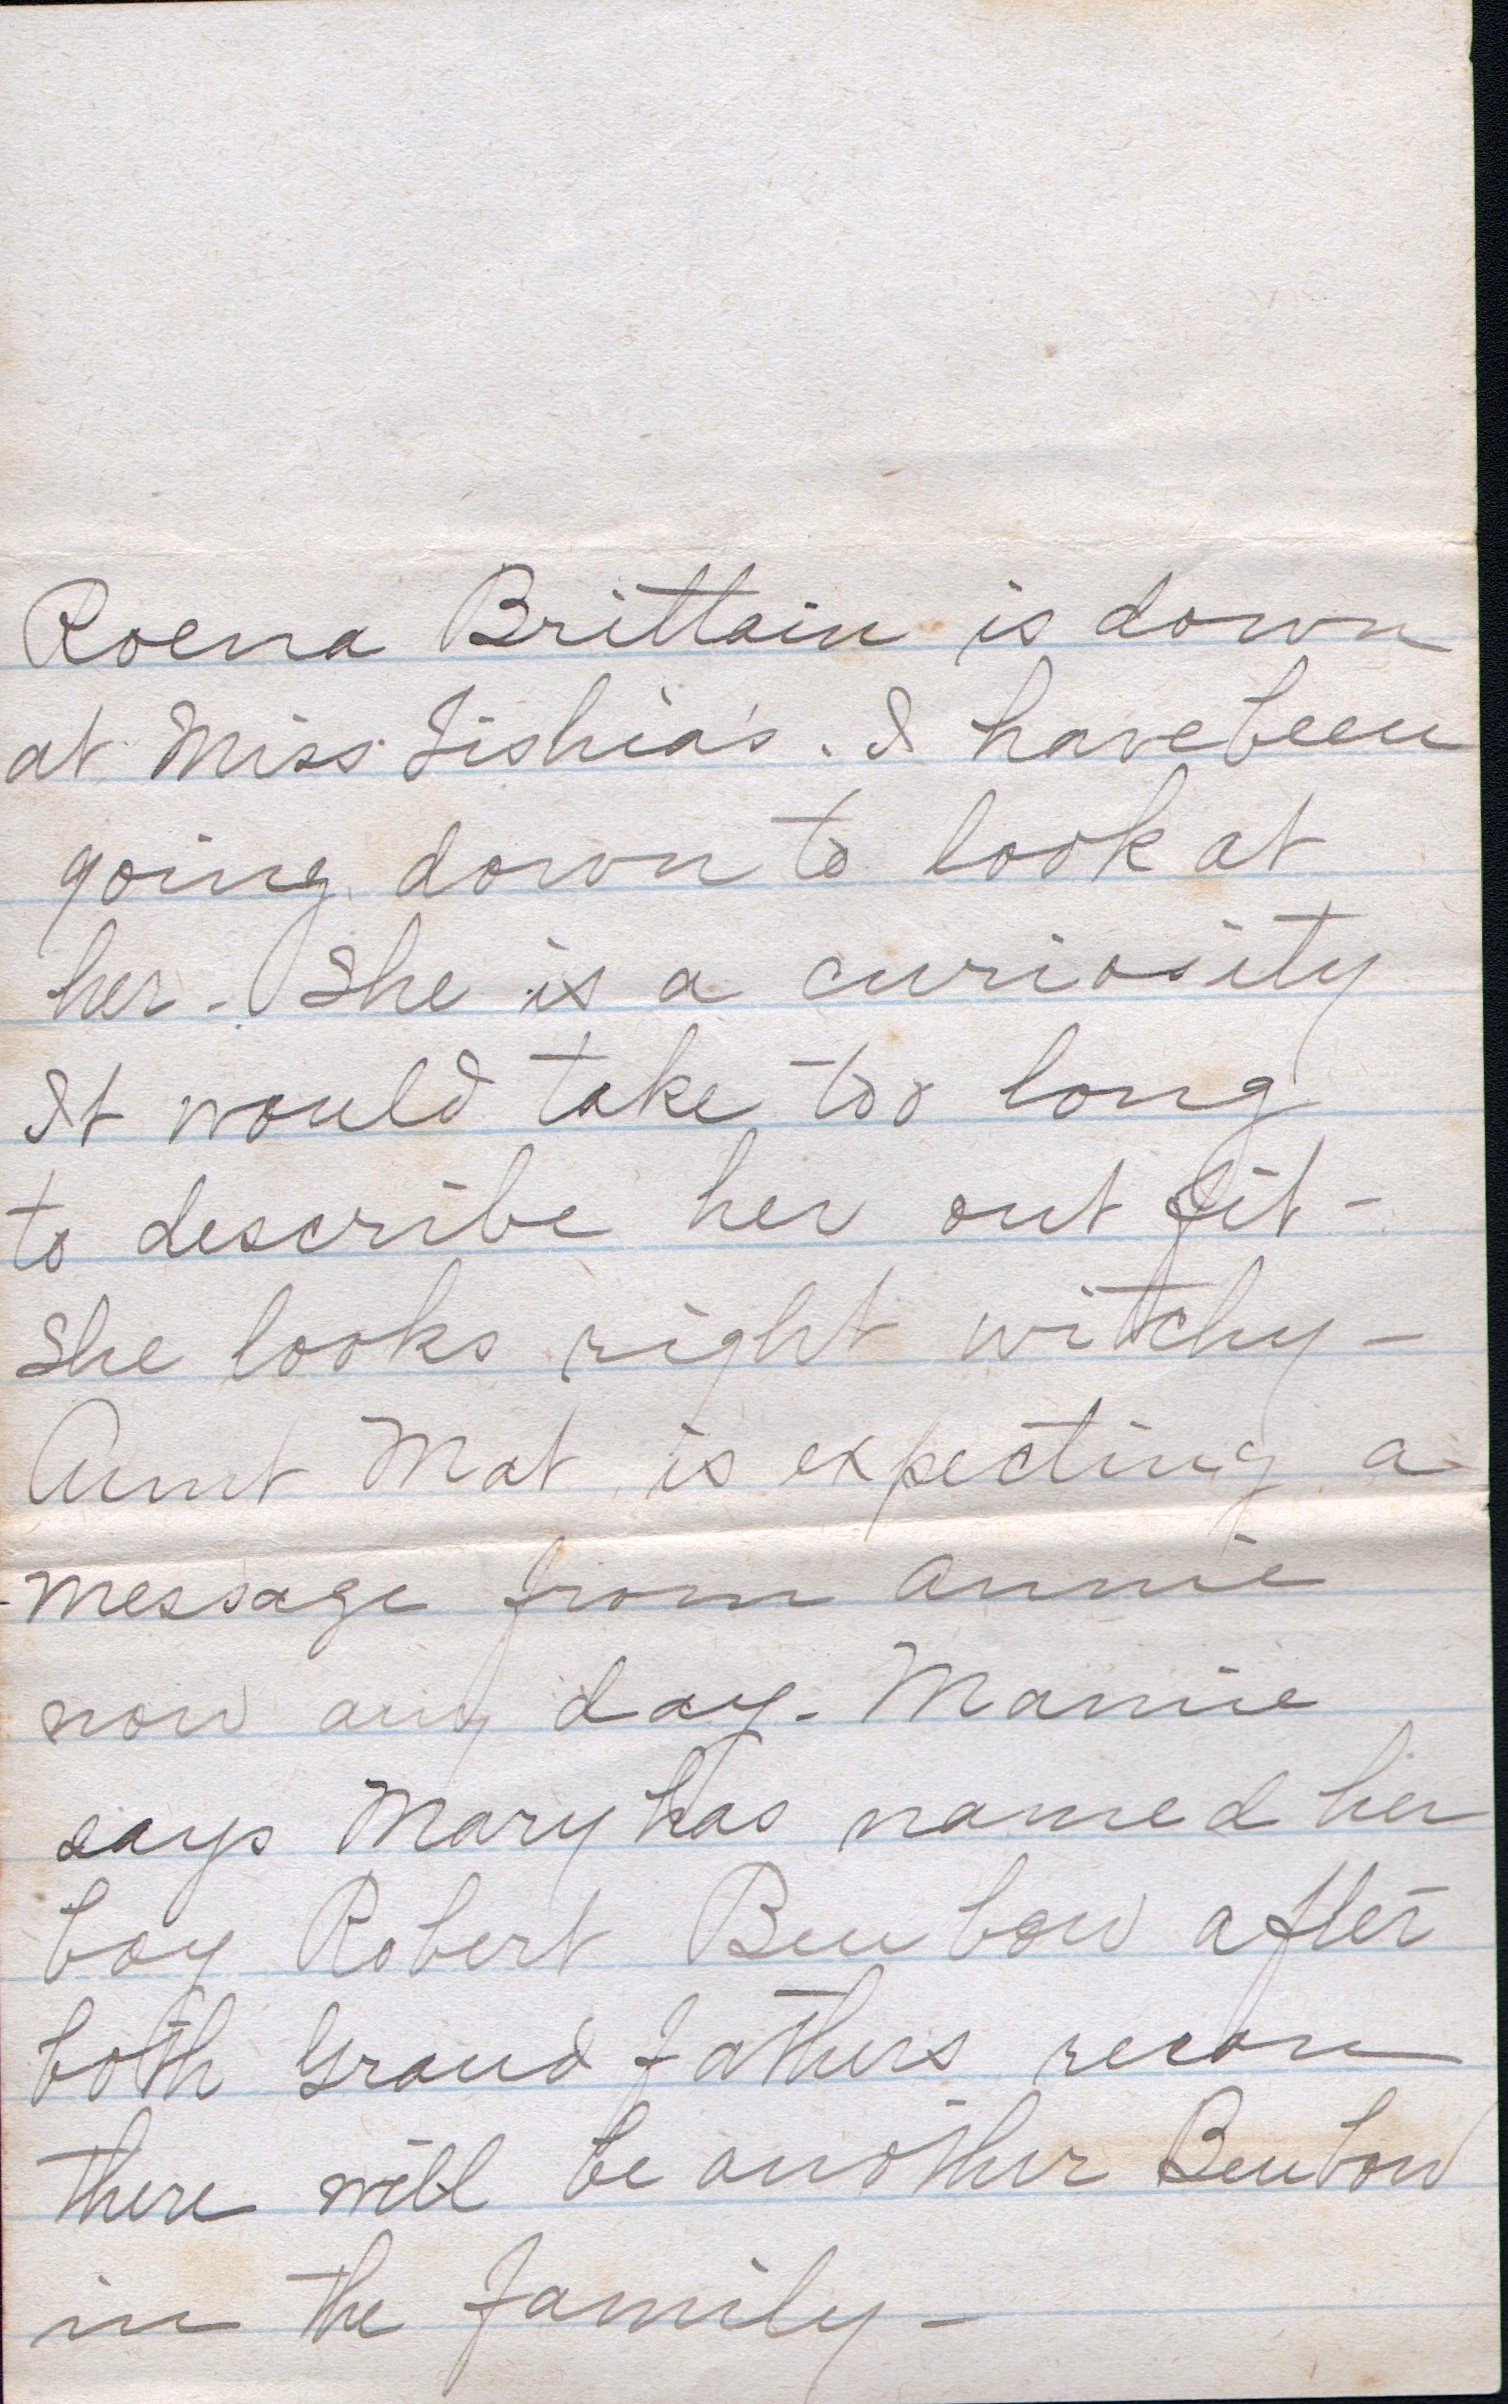 Roena Brittain is down
at Miss Tishia's. I have been
going down to look at
her - She is a curiosity
It would take too long
to describe her out fit -
She looks right witchy -
Aunt Mat is expecting a
message from Annie
now any day - Mamie
says Mary has named her
boy Robert Benbow after
both Grand fathers recon
there will be another Benbow
in the family -